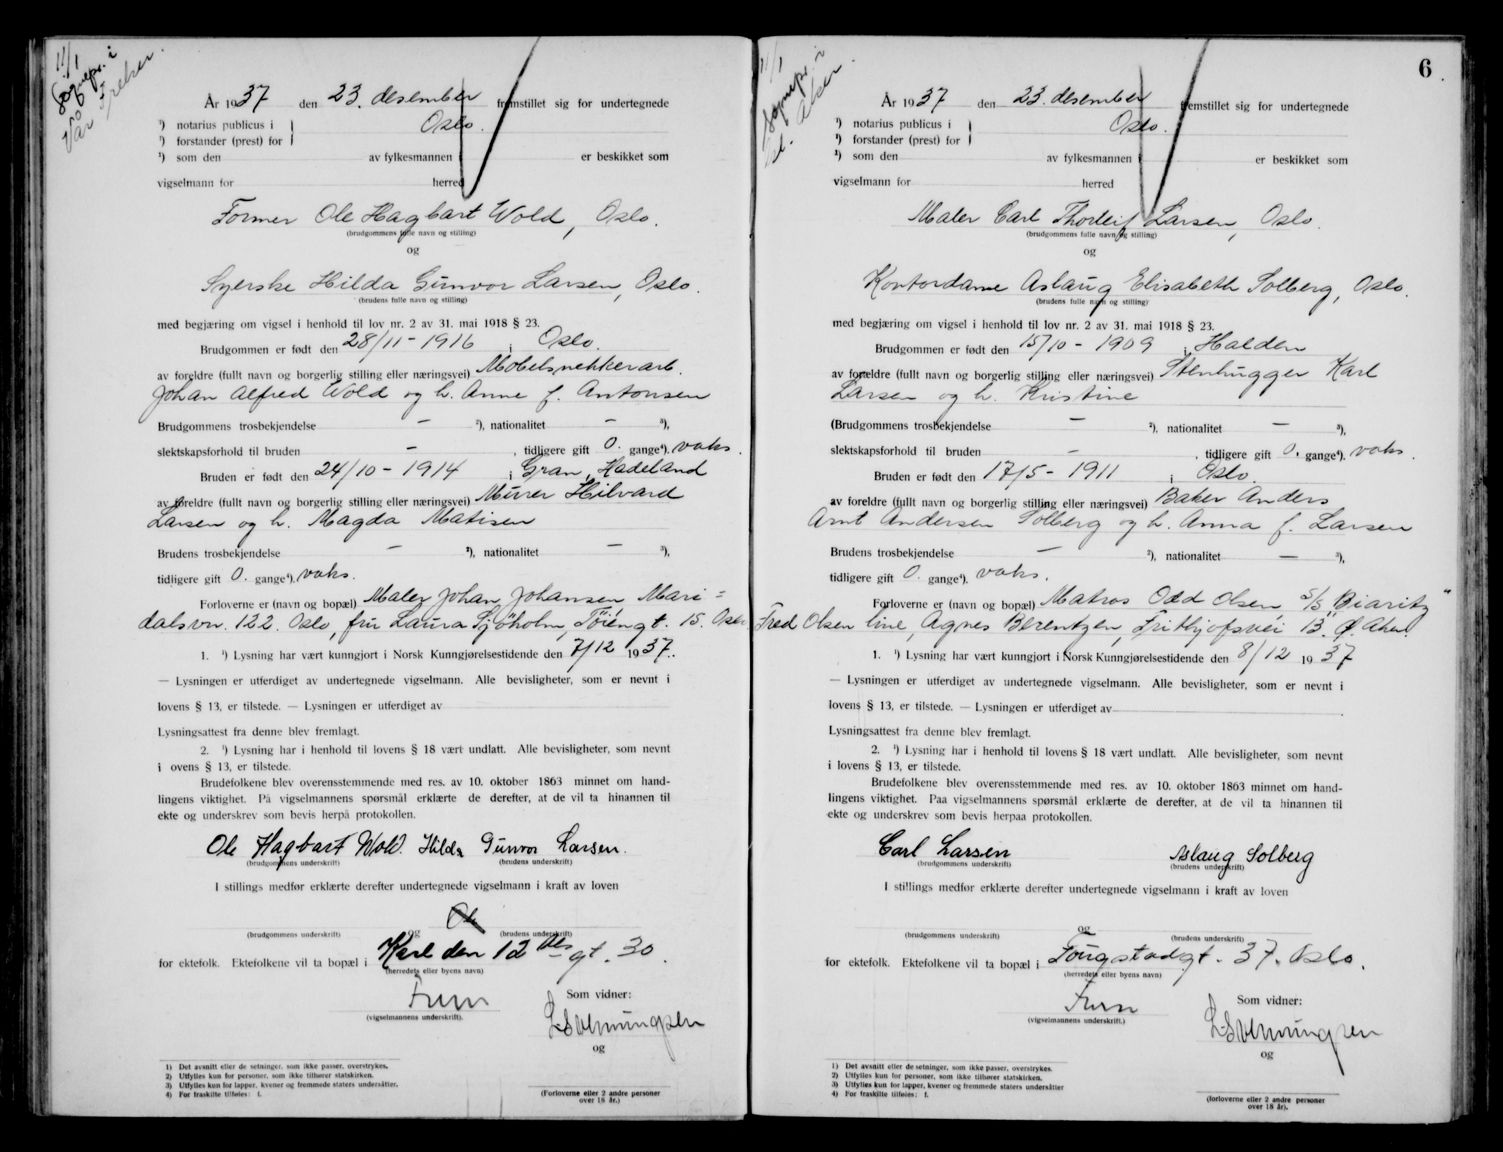 11/1
Sognepr. i
Vår Frelser.
År 1937 den 23. desember fremstillet sig for undertegnede
¹) notarius publicus i Oslo.
¹) forstander (prest) for
¹) som den av fylkesmannen i er beskikket som
vigselmann for herred
Former Ole Hagbart Wold, Oslo.
(brudgommens fulle navn og stilling)
og
Syerske Hilda Gunvor Larsen, Oslo.
(brudens fulle navn og stilling)
med begjæring om vigsel i henhold til lov nr. 2 av 31. mai 1918 § 23.
Brudgommen er født den 28/11 - 1916 i Oslo.
av foreldre (fullt navn og borgerlig stilling eller næringsvei) Møbelsnekkerarb.
Johan Alfred Wold og h. Anne f. Antonsen
Brudgommens trosbekjendelse — ²), nationalitet — ³),
slektskapsforhold til bruden — , tidligere gift 0. gange⁴). vaks.
Bruden er født den 24/10 - 1914 i Gran, Hadeland
av foreldre (fullt navn og borgerlig stilling eller næringsvei) Murer Hilvard
Larsen og h. Magda Matisen
Brudens trosbekjendelse — ²), nationalitet — ³),
tidligere gift 0. gange⁴). vaks.
Forloverne er (navn og bopæl) Maler Johan Johansen Mari=
dalsvn. 122. Oslo, fru Laura Sjøholm, 15. Oslo
1. ¹) Lysning har vært kunngjort i Norsk Kunngjørelsestidende den 7/12 1937.
— Lysningen er utferdiget av undertegnede vigselmann. Alle bevisligheter, som er nevnt i
lovens § 13, er tilstede. — Lysningen er utferdiget av
Lysningsattest fra denne blev fremlagt.
2. ¹) Lysning har i henhold til lovens § 18 vært undlatt. Alle bevisligheter, som nevnt
i ovens § 13, er tilstede.
Brudefolkene blev overensstemmende med res. av 10. oktober 1863 minnet om hand-
lingens viktighet. På vigselmannens spørsmål erklærte de derefter, at de vil ta hinannen til
ekte og underskrev som bevis herpå protokollen.
Ole Hagbart Wold. Hilda Gunvor Larsen.
(brudgommens underskrift) (brudens underskrift)
I stillings medfør erklærte derefter undertegnede vigselmann i kraft av loven
Ole
og
(brudgommens underskrift) (brudens underskrift)
for ektefolk. Ektefolkene vil ta bopæl i Karl den 12tes gt. 30.
(herredets eller byens navn)
(vigselmannens underskrift).
Som vidner:
og
1) Det avsnitt eller de setninger, som ikke passer, overstrykes.
2) Utfylles kun for personer, som ikke tilhører statskirken.
3) Utfylles kun for lapper, kvener og fremmede staters undersåtter.
4) For fraskilte tilføies: f.
(Forloverne eller 2 andre personer
over 18 år.)
6
11/1
Sognepr. i
År 1937 den 23. desember fremstillet sig for undertegnede
¹) notarius publicus i Oslo.
¹) forstander (prest) for
¹) som den av fylkesmannen i er beskikket som
vigselmann for herred
Maler Carl Thorleif Larsen, Oslo.
(brudgommens fulle navn og stilling)
og
Kontordame Aslaug Elisabeth Solberg, Oslo.
(brudens fulle navn og stilling)
med begjæring om vigsel i henhold til lov nr. 2 av 31. mai 1918 § 23.
Brudgommen er født den 15/10 - 1909 i Halden
av foreldre (fullt navn og borgerlig stilling eller næringsvei) Stenhugger Karl
Larsen og h. Kristine
(Brudgommens trosbekjendelse — ²), nationalitet — ³),
slektskapsforhold til bruden — , tidligere gift 0. gange⁴). vaks.
Bruden er født den 17/5 - 1911 i Oslo.
av foreldre (fullt navn og borgerlig stilling eller næringsvei) Baker Anders
Arnt Andersen Solberg og h. Anna f. Larsen
Brudens trosbekjendelse — ²), nationalitet — ³),
tidligere gift 0. gange⁴). vaks.
Forloverne er (navn og bopæl) Matros Odd Olsen s/s „Biaritz"
Fred Olsen line, Agnes Berentzen, Frithjofsvei 13. Ø. Aker.
1. ¹) Lysning har vært kunngjort i Norsk Kunngjørelsestidende den 8/12 1937
— Lysningen er utferdiget av undertegnede vigselmann. Alle bevisligheter, som er nevnt i
lovens § 13, er tilstede. — Lysningen er utferdiget av
Lysningsattest fra denne blev fremlagt.
2. ¹) Lysning har i henhold til lovens § 18 vært undlatt. Alle bevisligheter, som nevnt
i lovens § 13, er tilstede.
Brudefolkene blev overensstemmende med res. av 10. oktober 1863 minnet om hand-
lingens viktighet. Paa vigselmannens spørsmål erklærte de derefter, at de vil ta hinannen til
ekte og underskrev som bevis herpaa protokollen.
Carl Larsen Aslaug Solberg
(brudgommens underskrift) (brudens underskrift)
I stillings medfør erklærte derefter undertegnede vigselmann i kraft av loven
og
(brudgommens underskrift) (brudens underskrift)
for ektefolk. Ektefolkene vil ta bopæl i Fougstadgt. 37. Oslo.
(herredets eller byens navn)
(vigselmannens underskrift.)
Som vidner:
og
1) Det avsnitt eller de setninger, som ikke passer, overstrykes.
2) Utfylles kun for personer, som ikke tilhører statskirken.
3) Utfylles kun for lapper, kvener og fremmede staters undersåtter
4) For fraskilte tilføies: f.
(forloverne eller 2 andre personer
over 18 år).